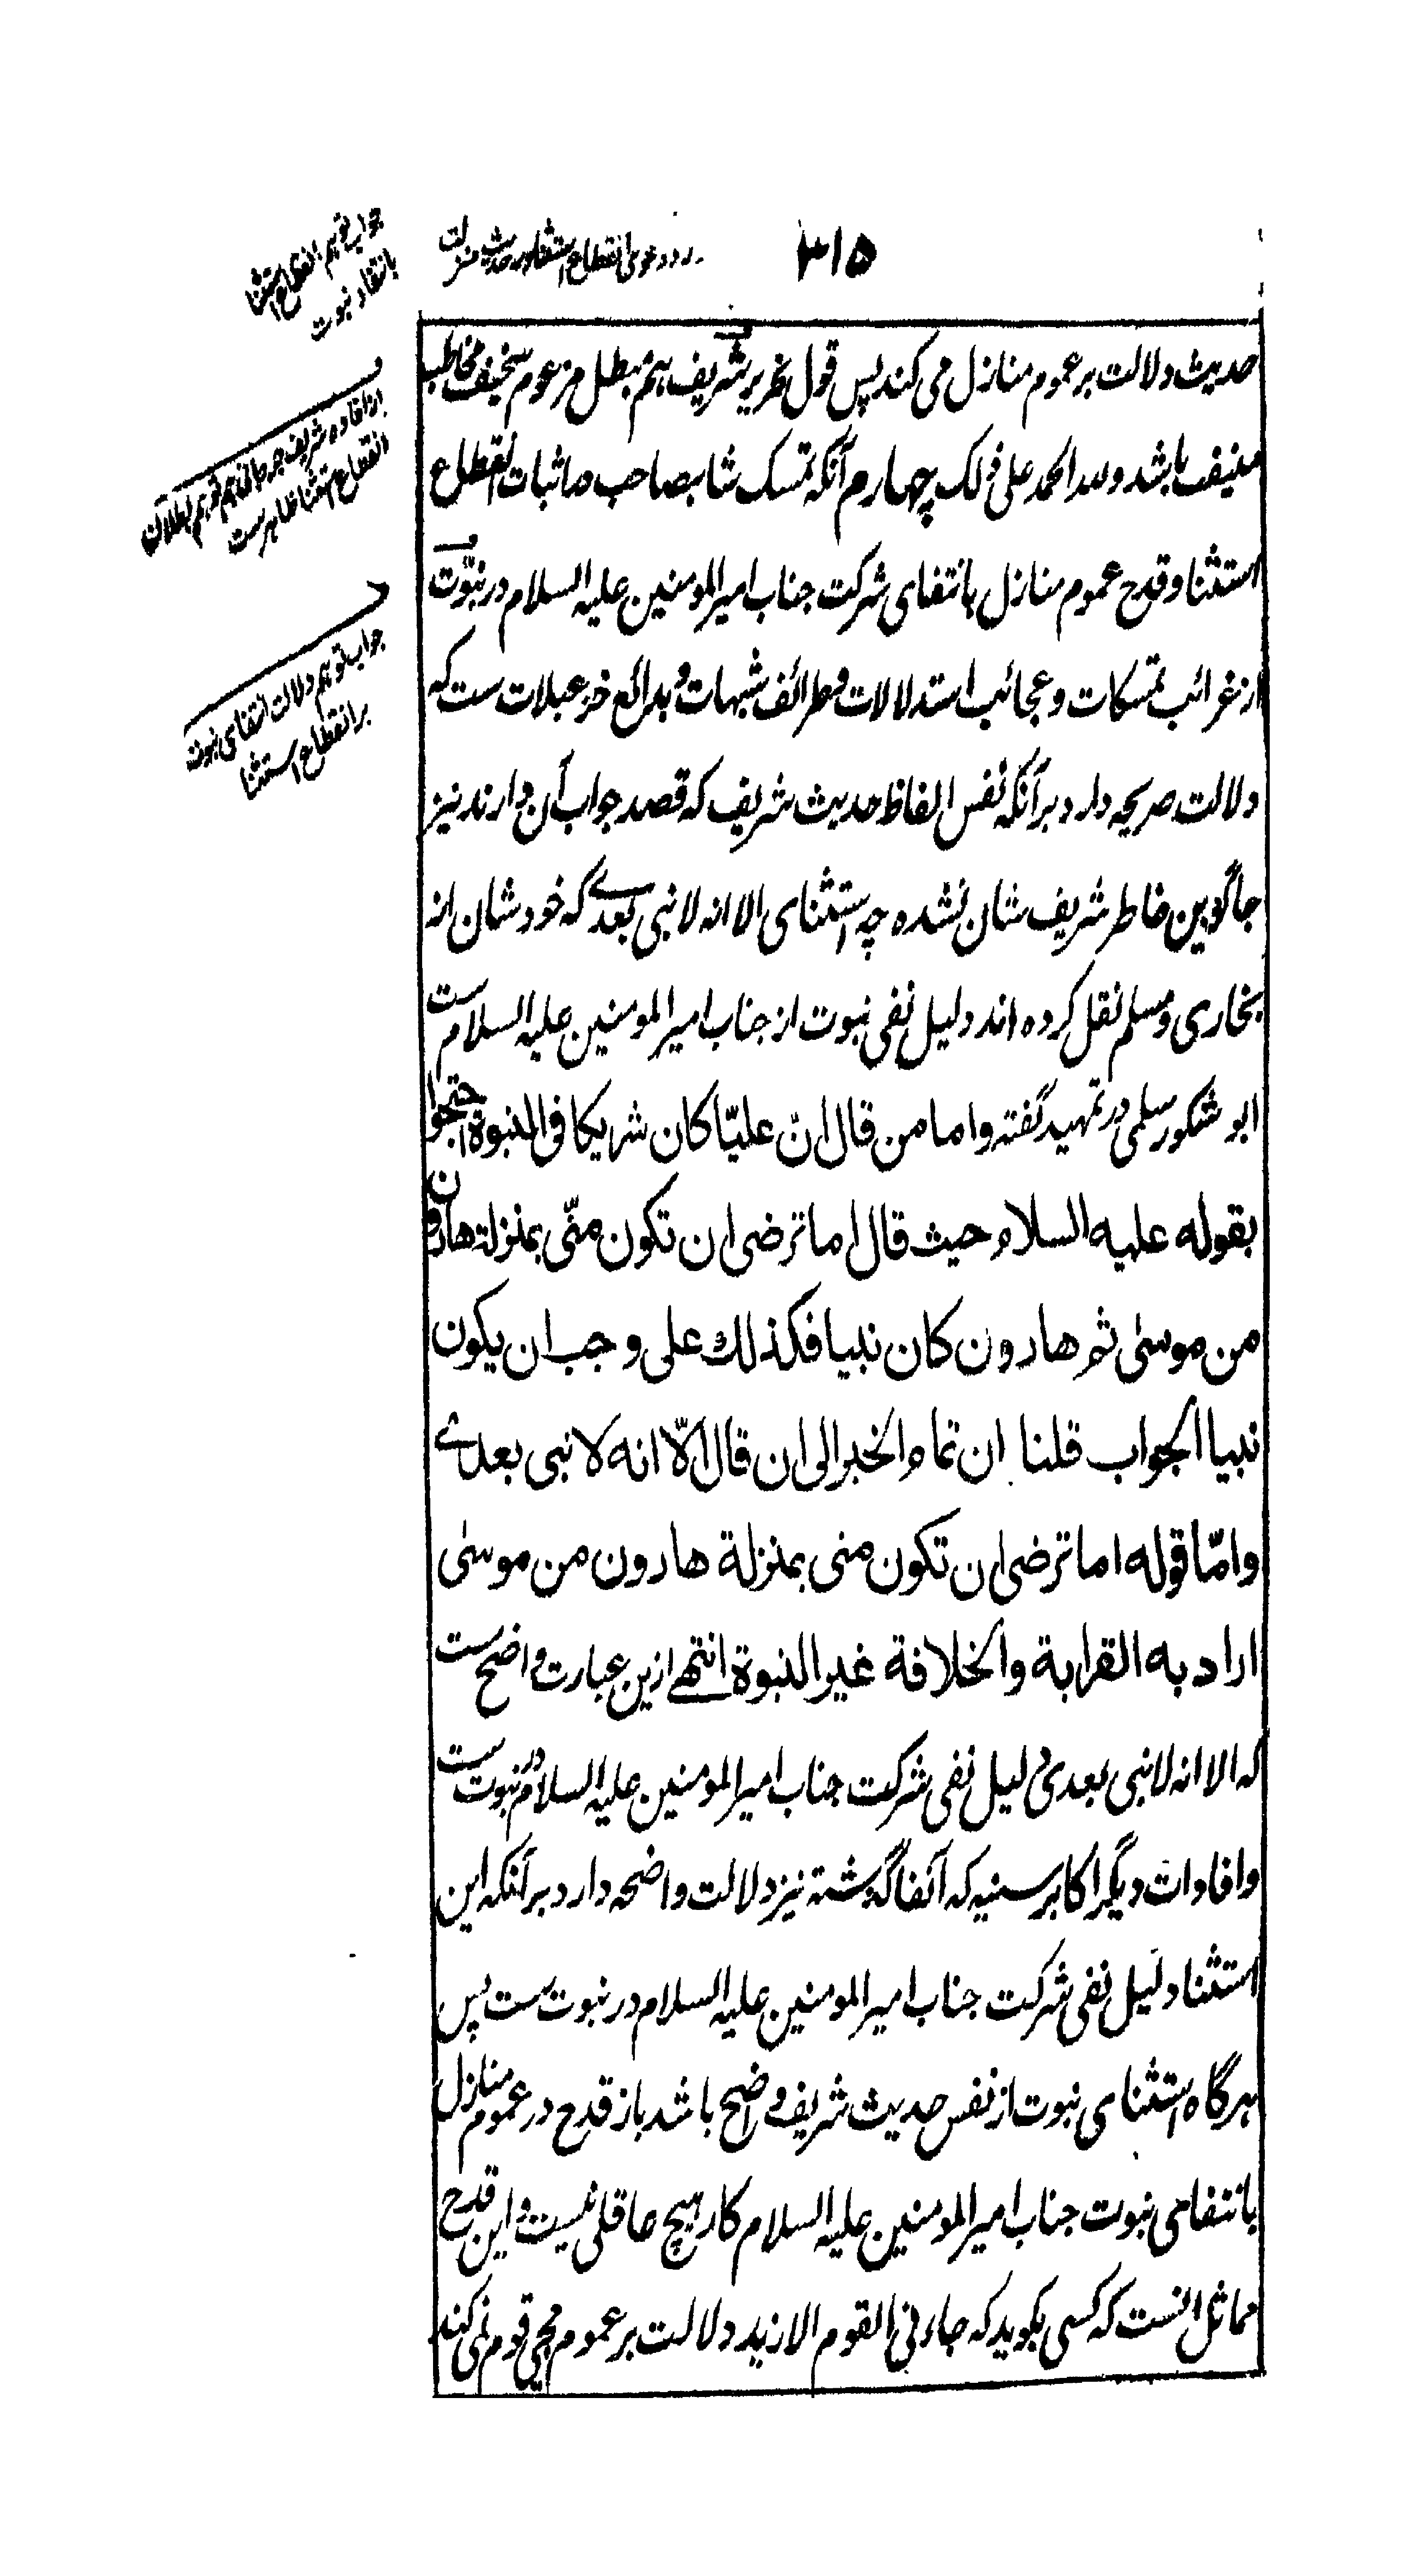 ۳۱۵
رد دعوی انقطاع استثنا در حدیث منزلت
جواب توهم انقطاع استثنا
بانتفاء نبوت
حدیث دلالت بر عموم منازل می کند پس قول تحریر شریف هم مبطل مزعوم سخیف مخاطب
منیف باشد ولله الحمد علی ذلک چهارم آنکه تمسک شاہصاحب در اثبات انقطاع
استثنا و قدح عموم منازل بانتفای شرکت جناب امیر المومنین علیه السلام در نبوّت
از غرائب تمسکات و عجائب استدلالات و طرائف شبهات و بدائع خزعبلات ست که
دلالت صریحه دارد بر آنکه نفس الفاظ حدیث شریف که قصد جواب آن دارند نیز
جاگزین خاطر شریف شان نشده چه استثنای الا انه لا نبی بعدے که خود شان از
بخاری و مسلم نقل کرده اند دلیل نفی نبوت از جناب امیر المومنین علیه السلام ست
ابو شکور سلمی در تمهید گفته واما من قال انّ علیّا کان شریکا فی النبوة احتجوا
بقوله علیه السلام حیث قال اما ترضی ان تکون منّی بمنزلة هارون
من موسیٰ ثم هارون کان نبیا فکذلك علی وجب ان یکون
نبیا الجواب قلنا ان تمام الخبر الی ان قال الّا انه لا نبی بعدے
وامّا قوله اما ترضی ان تکون منی بمنزلة هارون من موسیٰ
اراد به القرابة والخلافة غیر النبوة انتهے ازین عبارت واضح ست
که الا انه لا نبی بعدی دلیل نفی شرکت جناب امیر المومنین علیه السلام در نبوت ست
وافادات دیگر اکابر سنیه که آنفا گذشته نیز دلالت واضحه دارد بر آنکه این
استثنا دلیل نفی شرکت جناب امیر المومنین علیه السلام در نبوت ست پس
هرگاه استثنای نبوت از نفس حدیث شریف واضح باشد باز قدح در عموم منازل
بانتفای نبوت جناب امیر المومنین علیه السلام کار هیچ عاقلی نیست و این قدح
مماثل انست که کسی بگوید که جاءنی القوم الا زید دلالت بر عموم مجیٔ قوم نمی کند
از افاده شریف جرجانی هم توهم بطلان
انقطاع استثنا ظاهر ست
جواب توهم دلالت انتفای نبوت
بر انقطاع استثنا